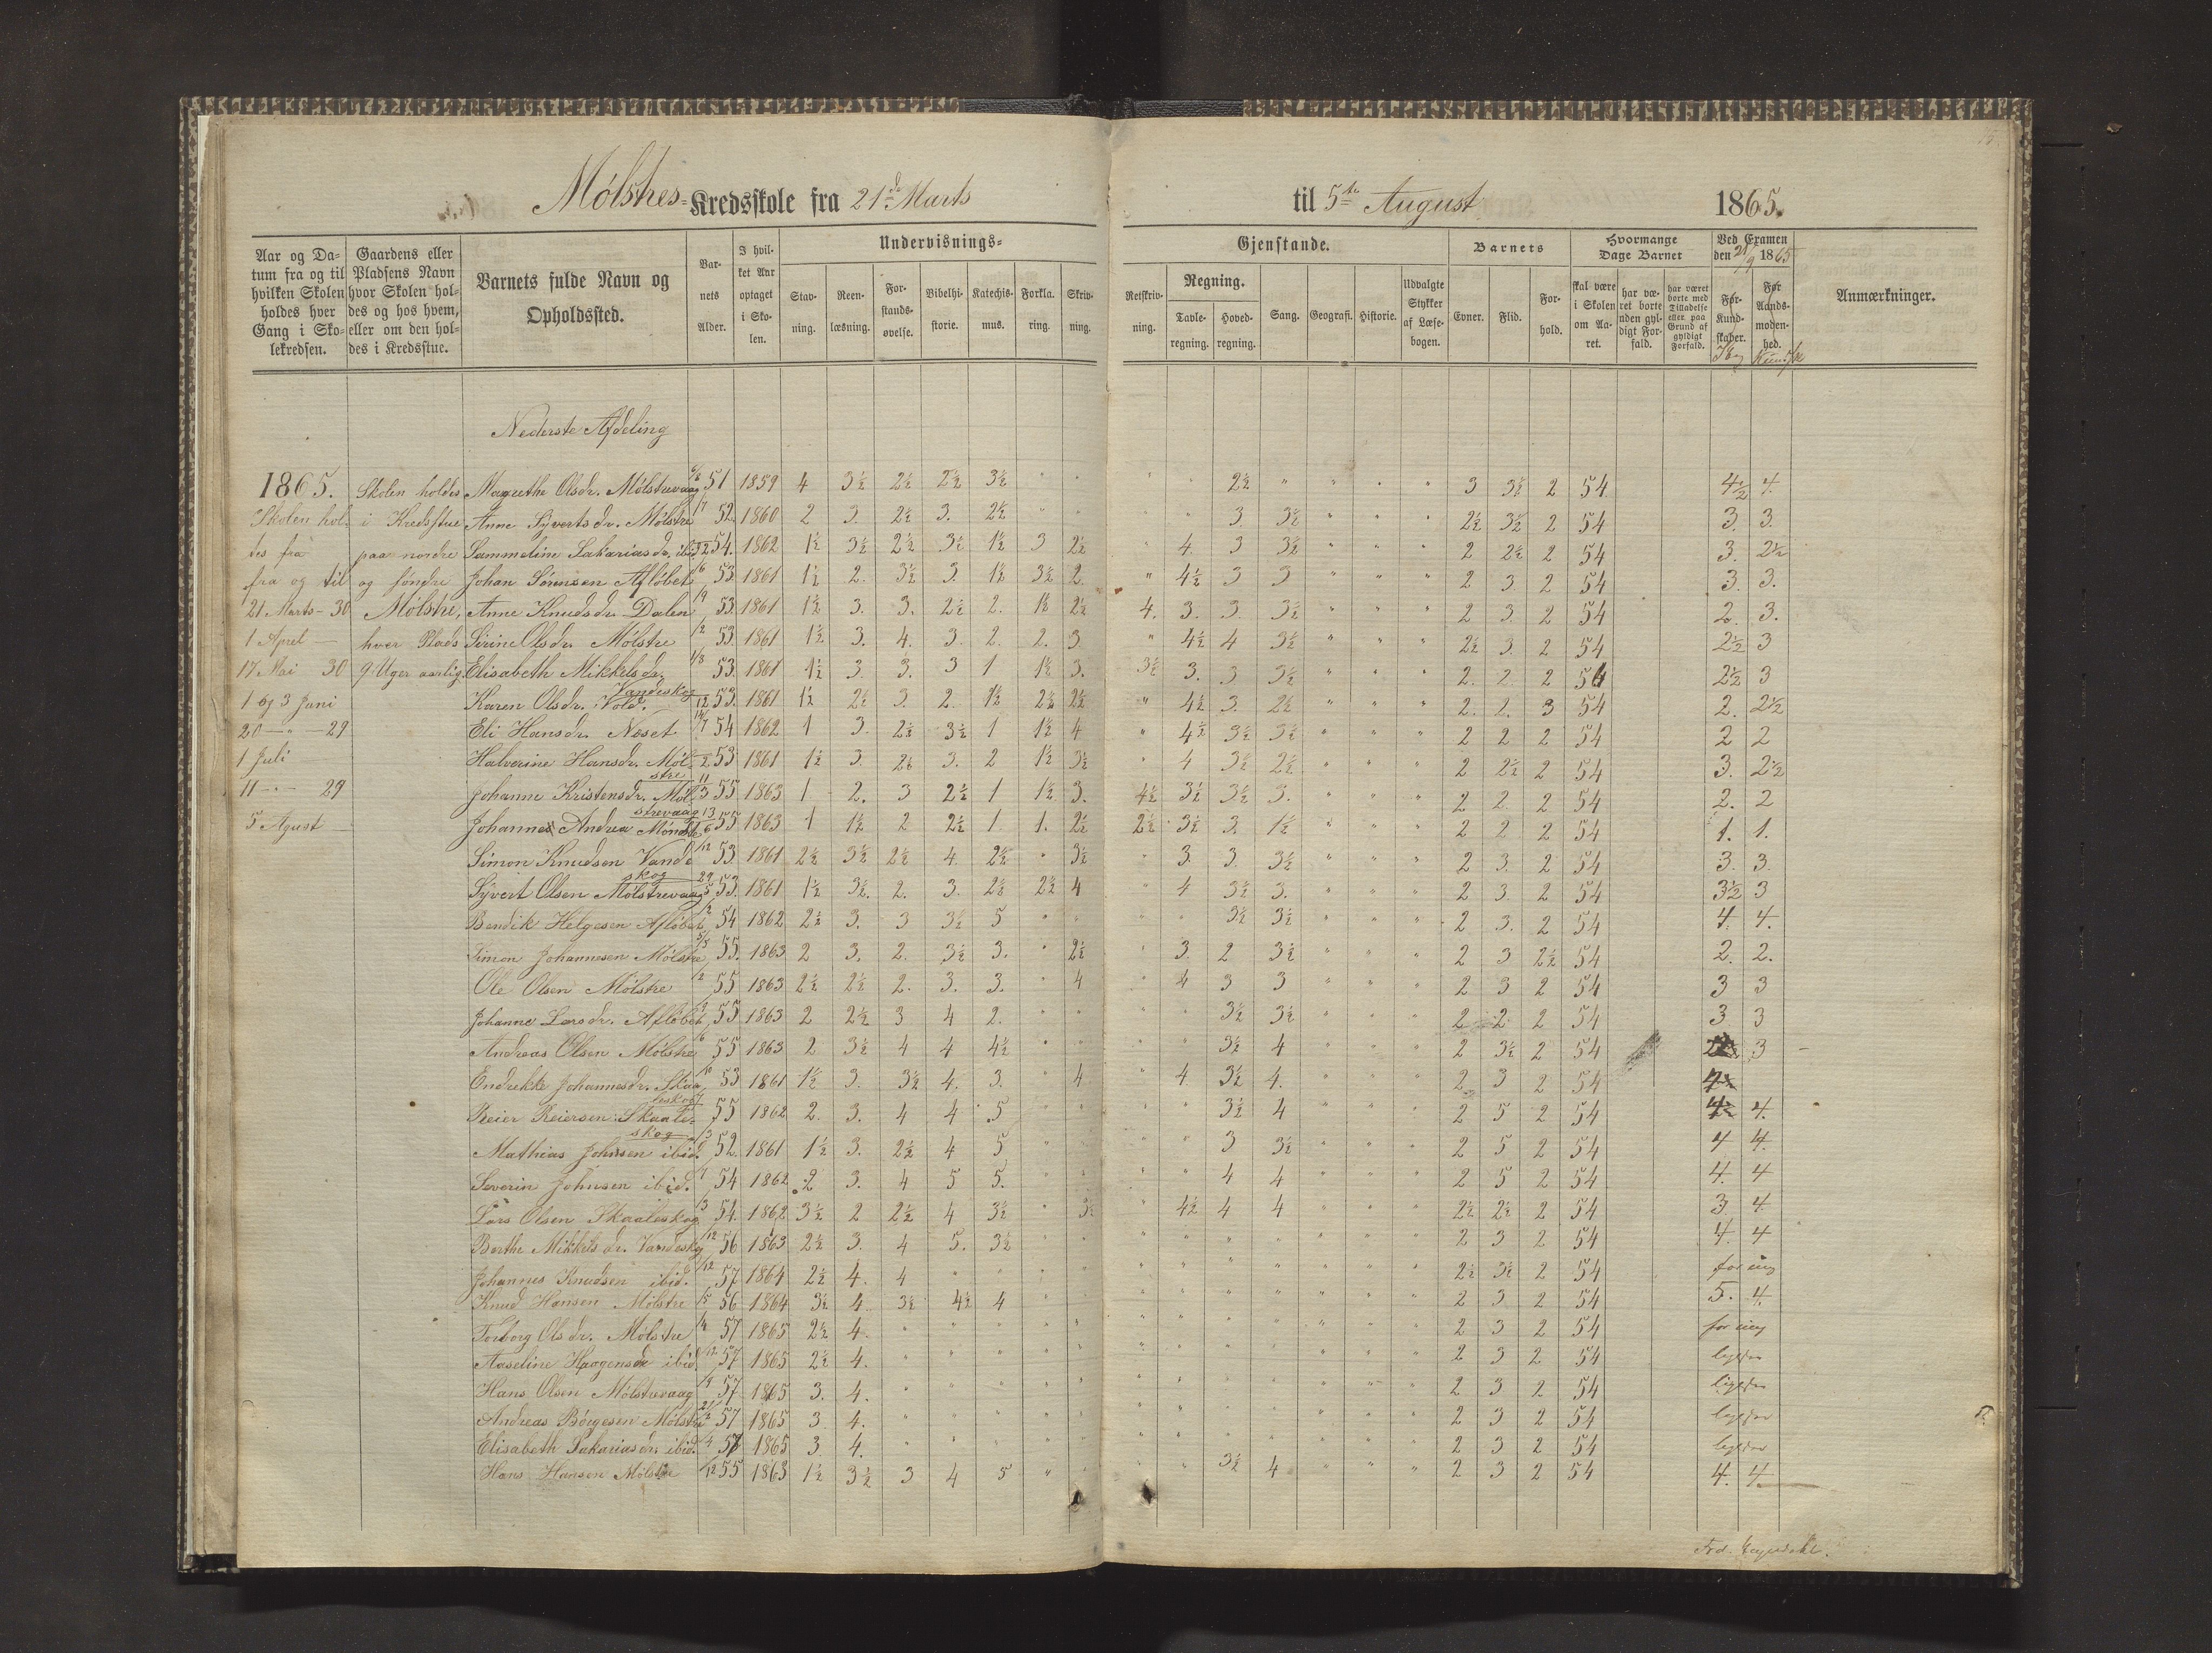 Mølstres= Kredsskole fra 21de Marts til 5te August 1865.
Aar og Da-
tum fra og til
hvilken Skolen
holdes hver
Gang i Sko-
lekredsen.
Gaardens eller
Pladsens Navn
hvor Skolen hol-
des og hos hvem,
eller om den hol-
des i Kredsstue.
Barnets fulde Navn og
Opholdssted.
Bar-
nets
Alder.
I hvil-
ket Aar
optaget
i Sko-
len.
Undervisnings=
Stav-
ning.
Reen-
læsning.
For-
stands-
øvelse.
Bibelhi-
storie.
Katechis-
mus.
Forkla-
ring.
Skriv-
ning.
Gjenstande.
Retskriv-
ning.
Regning.
Tavle-
regning.
Hoved-
regning.
Sang.
Geografi.
Historie.
Udvalgte
Stykker
af Læse-
bogen.
Barnets
Evner.
Flid.
For-
hold.
Hvormange
Dage Barnet
skal være
i Skolen
om Aa-
ret.
har væ-
ret borte
uden gyl-
digt For-
fald.
har været
borte med
Tilladelse
eller paa
Grund af
gyldigt
Forfald.
Ved Examen
den 21/9 1865
For-
Kund-
skaber.
For
Aands-
moden-
hed.
Anmærkninger.
Nederste Afdeling
1865. Skolen holdes Magrethe Olsdr. Mølstrevaag 51 1859 4 3½ 2½ 2½ 3½ " " " " 2½ " " " " 3 3½ 2 54 4½ 4.
Skolen hol- i Kredsstue Anne Syvertsdr. Mølstre 52. 1860 2 3. 2½ 3. 2½ " " " " 3. 3½ " " " 2½ 3½ 2 54 3. 3.
tes fra paa nordre Sammeline Sakariasdr. ibid 54. 1862 1½ 3½ 2½ 3½ 1½ 3 2½ " 4. 3 3½ " " " 2 2½ 2 54 3. 2½
fra og til og søndre Johan Sørensen Afløbet 53. 1861 1½ 2. 3½ 3. 1½ 3½ 2. " 4½ 3 3 " " " 2 3. 2 54 3. 3.
21 Marts - 30 Mølstre, Anne Knudsdr. Dalen 53. 1861 1½ 3. 3. 2½ 2. 1½ 2½ 4. 3. 3. 3½ " " " 2 3. 2 54 2. 3.
1 April — hver Plads Sirine Olsdr. Mølstre 53. 1861 1½ 3. 4. 3. 2. 2. 3 " 4½ 4 3½ " " " 2½ 3. 2 54 2½ 3
17 Mai 30 9 Uger aarlig Elisabeth Mikkelsdr. Vandeskog 53. 1861 1½ 3. 3. 3 1 1½ 3. 3½ 3. 3 3½ " " " 2. 2. 2 54 2½ 3
1 og 3 Juni Karen Olsdr. Vold. 53. 1861 1½ 2½ 3. 2. 1½ 2½ 2½ " 4½ 3. 2½ " " " 2. 2. 3 54 2. 2½
20 — " — 29 Eli Hansdr. Næset 54 1862 1 3. 2½ 3½ 1 1½ 4 " 4½ 3½ 3½ " " " 2 2 2 54 2 2
1 Juli Halverine Hansdr. Møl-
stre 53 1861 1½ 3. 2½ 3. 2 1½ 3½ " 4 3½ 2½ " " " 2 2½ 2 54 3. 2½
11 — " — 29 Johanne Kristensdr. Møl-
strevaag 55 1863 1 2. 3 2½ 1 1½ 3. 4½ 3½ 3½ 3. " " " 2 2. 2 54 2. 2
5 Agust — Johanne Andrea 55 1863 1 1½ 2 2½ 1. 1. 2½ 2½ 3½ 3. 1½ " " " 2 2 2 54 1. 1.
Simon Knudsen Vande
skog 53. 1861 2½ 3½ 2½ 4. 2½ " 3½ " 3. 3. 3½ " " " 2 3. 2 54 3. 3.
Syvert Olsen Mølstrevaag 53. 1861 1½ 3½. 2. 3. 2½ 2½ 4 " 4 3½ 3. " " " 2 3. 2 54 3½ 3
Bendik Helgesen Afløbet 54 1862 2½ 3. 3 3½ 5 " " " " 3½ 3½ " " " 2 3. 2 54 4. 4.
Simon Johannesen Mølstre 55. 1863 2 3. 2. 3½ 3. " 2½ " 3. 2 3½ " " " 2 3 2½ 54 2. 2.
Ole Olsen Mølstre 55 1863 2½ 2½ 2. 3. 3. " 4 " 4 3 3 " " " 2 3 2 54 3 3
Johanne Larsdr. Afløbet 55 1863 2 2½ 3 4 2. " " " " 3½ 3½ " " " 2 2 2 54 3 3
Andreas Olsen Mølstre 55 1863 2 3½ 4 4 4½ " " " " 3½ 4 " " " 2 3½ 2 54 3
Endrekke Johannesdr. Skaa
leskog 53 1861 1½ 3. 3½ 4. 3. " 4 " 4 3½ 4. " " " 2 3 2 54
Reier Reiersen Skaale-
skog 55 1862 2. 3. 4 4 5 " " " " 3½ 4 " " " 2 5 2 54 4.
Mathias Johnsen ibid. 52. 1861 1½ 3. 2½ 4 5 " " " " 3 3½ " " " 2 5 2 54 4 4.
Severin Johnsen ibid. 54 1862 2 3. 4 5 5. " " " " 4 4 " " " 2 5 2 54 4. 4
Lars Olsen Skaaleskog 54. 1862 3½ 2 2½ 4 3½ " 3½ " 4½ 4 4 " " " 2½ 2½ 2 54 3. 4.
Berthe Mikkelsdr. Vandeskog 56 1863 2½ 3. 4 5. 3½ " " " " " " " " " 2 3 2 54 4. 4
Johannes Knudsen ibid. 57 1864 2½ 4. 4 " " " " " " " " " " " 2½ 3½ 2 54 for ung
Knud Hansen Mølstre 56 1864 3½ 4. 3½ 4½ 4 " " " " " " " " " 2 3 2 54 5. 4.
Torborg Olsdr. Mølstre 57 1865 2½ 4. " " " " " " " " " " " " 2 3 2 54 for ung
Aaseline Haagensdr ibid. 57 1865 2½ 4. " " " " " " " " " " " " 2 3 2 54
Hans Olsen Mølstrevaag 57 1865 3. 4. " " " " " " " " " " " " 2 3 2 54
Andreas Børgesen Mølstre 57 1865 3 4. " " " " " " " " " " " " 2 3 2 54
Elisabeth Sakariasdr. ibid. 57 1865 3 4. " " " " " " " " " " " " 2 3 2 54
Hans Hansen Mølstre 55 1863 1½ 3½ 3 4 5 " " " " 3½ 4 " " " 2 3 2 54 4. 4.